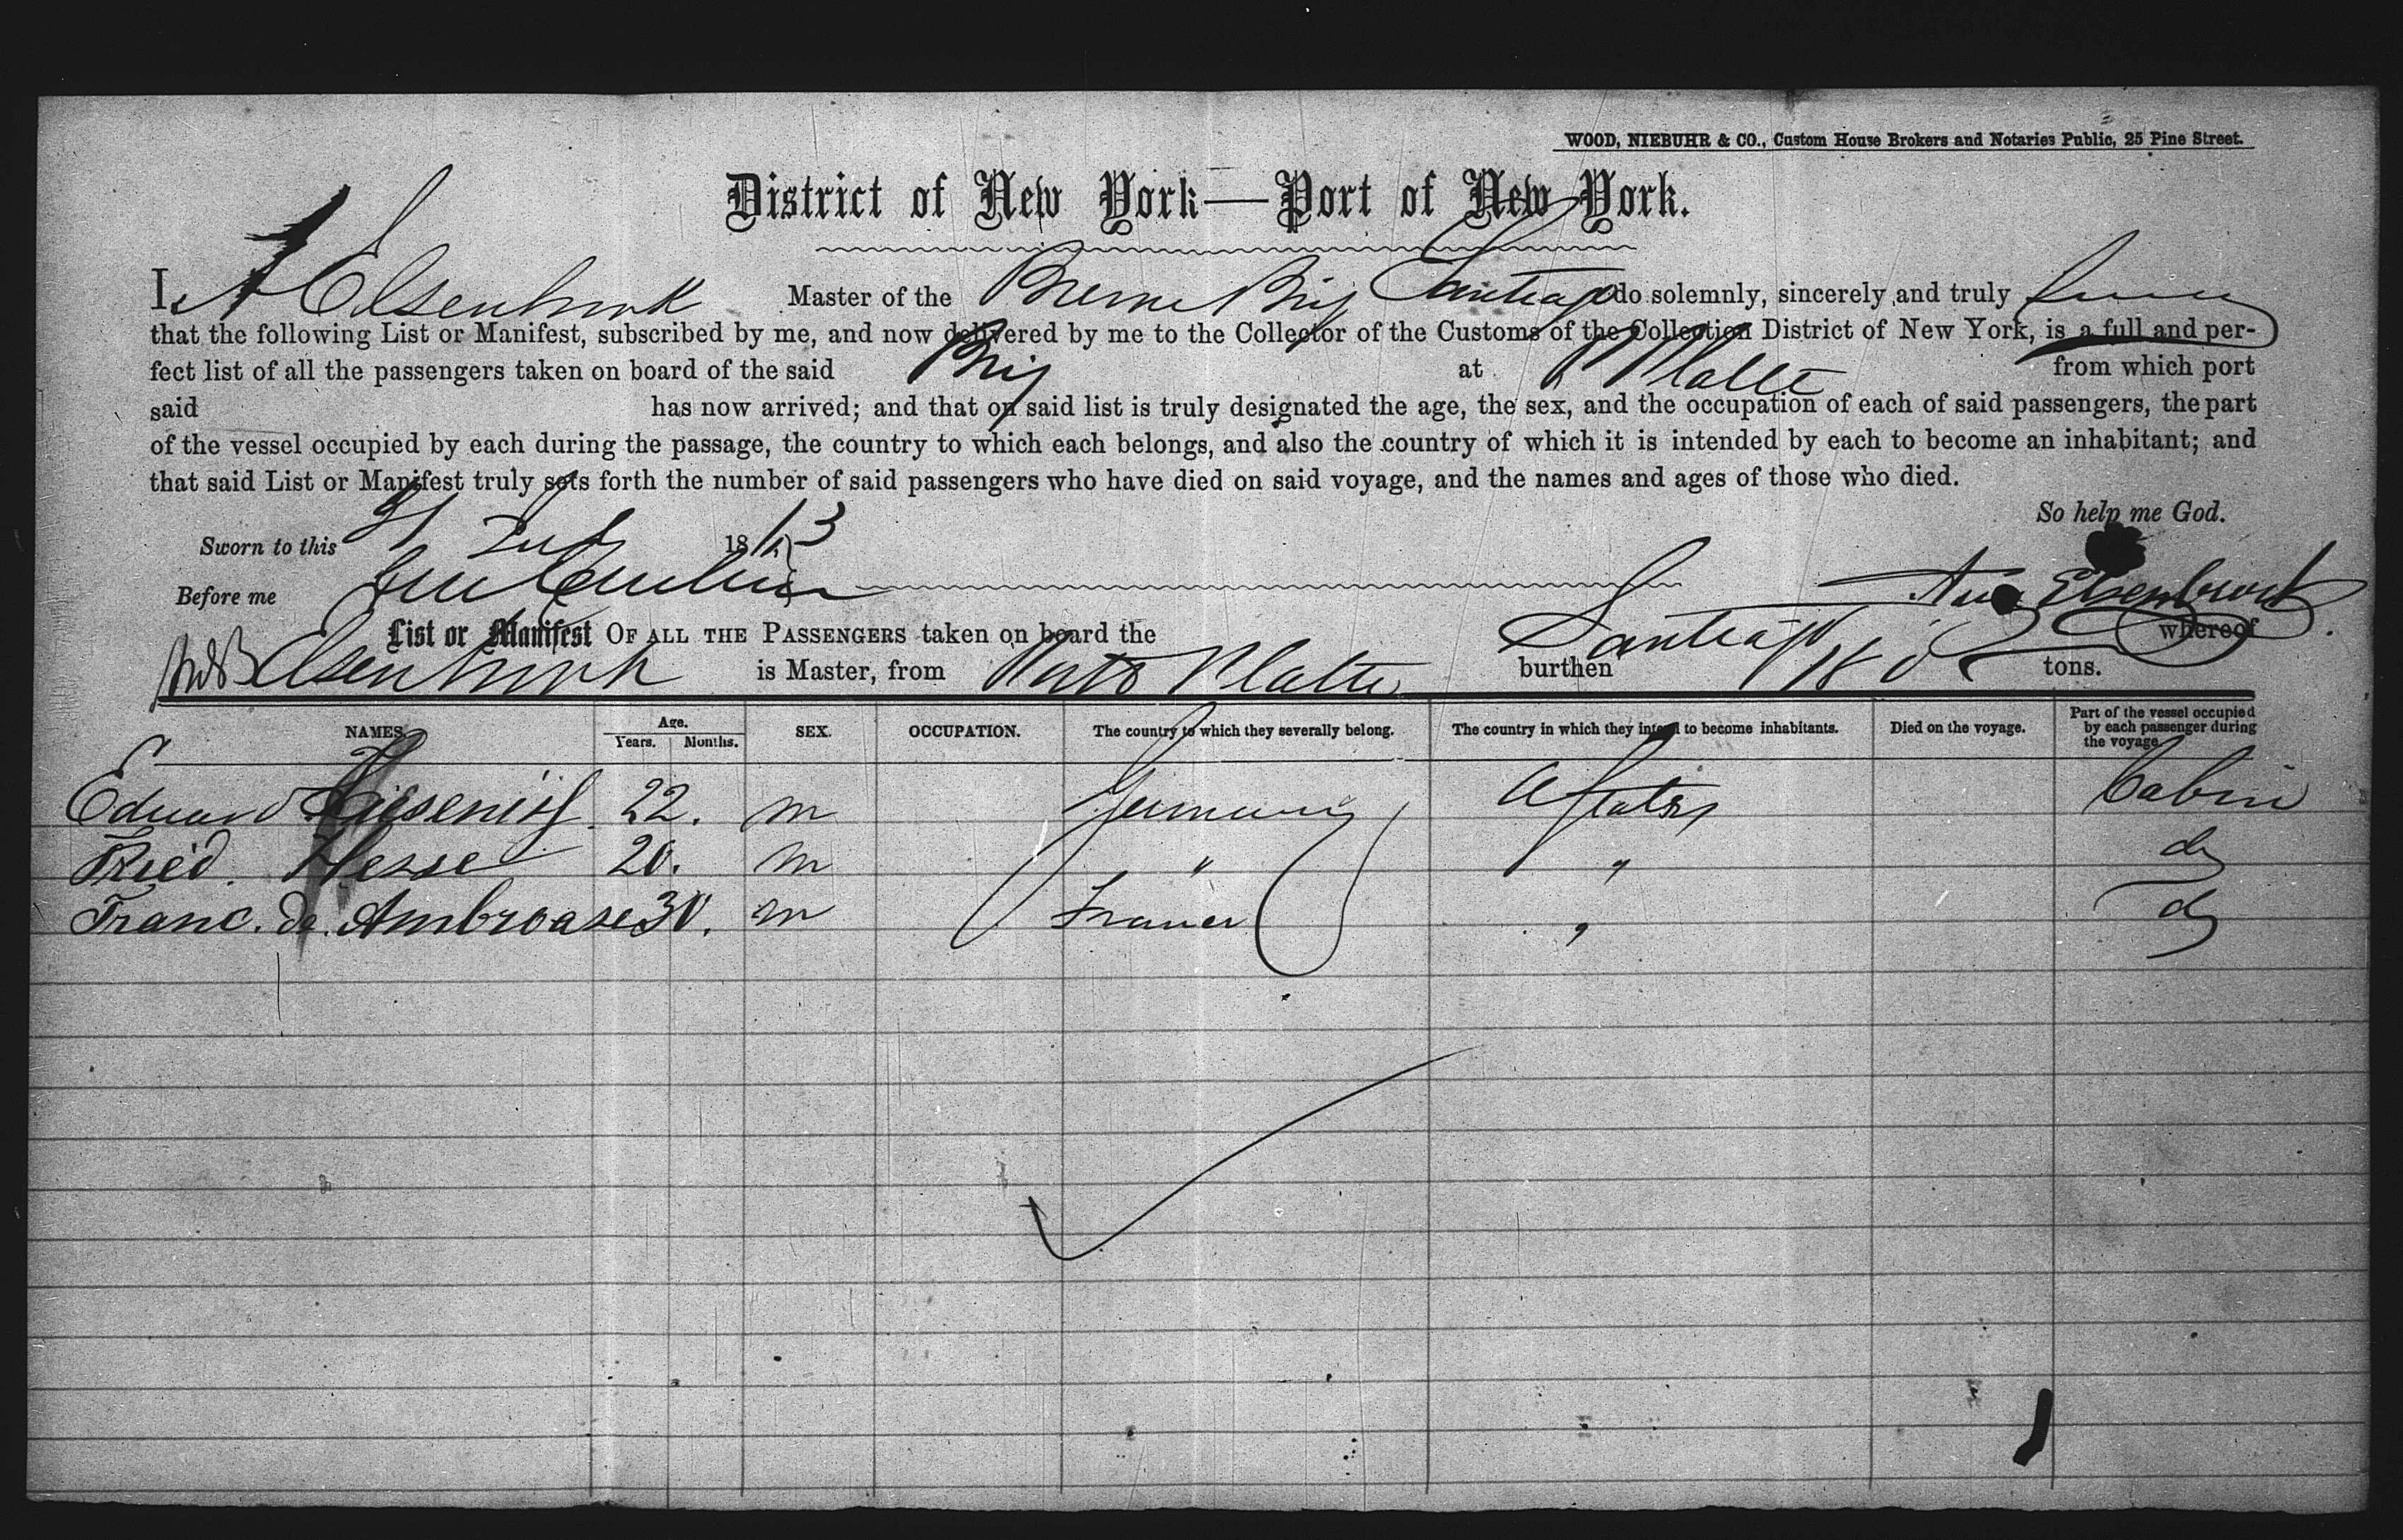 WOOD, NIEBUHR & CO., Custom House Brokers and Notaries Public, 25 Pine Street.
District of New York—Port of New York.
I, A Elsenbrock Master of the Breme Brig Santiago do solemnly, sincerely and truly swear
that the following List or Manifest, subscribed by me, and now delivered by me to the Collector of the Customs of the Collection District of New York, is a full and per-
fect list of all the passengers taken on board of the said Brig at P Platte from which port
said has now arrived; and that on said list is truly designated the age, the sex, and the occupation of each of said passengers, the part
of the vessel occupied by each during the passage, the country to which each belongs, and also the country of which it is intended by each to become an inhabitant; and
that said List or Manifest truly sets forth the number of said passengers who have died on said voyage, and the names and ages of those who died.
So help me God.
Sworn to this 31 July 18
Before me
Aug Elsenbrock
List or Manifest OF ALL THE PASSENGERS taken on board the Santiago whereof
Elsenbrock is Master, from Porto Platte burthen 180 tons.
NAMES. Age. Years. Months. SEX. OCCUPATION. The country to which they severally belong. The country in which they intend to become inhabitants. Died on the voyage. Part of the vessel occupied by each passenger during the voyage.
Eduard 22. m Germany U States Cabin
Fried. Hesse 20. m " " do
Franc. de. Ambroase 30. m France " do